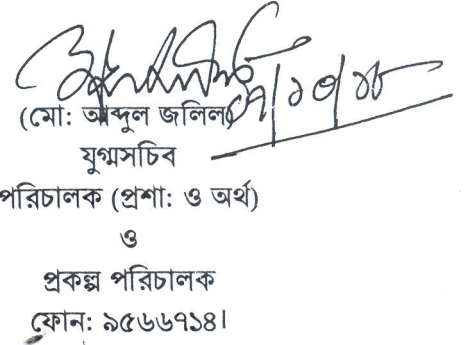 (মো: আব্দুল জলিল)
যুগ্মসচিব
পরিচালক (প্রশা: ও অর্থ)
ও
প্রকল্প পরিচালক
ফোন: ৯৫৬৬৭১৪।